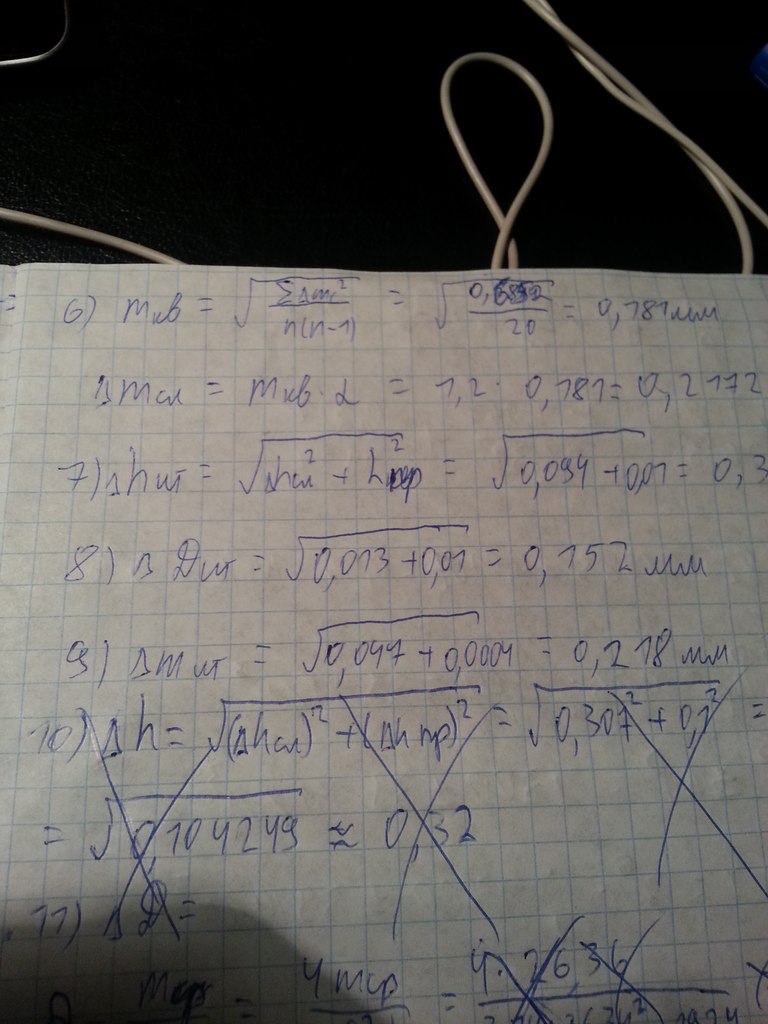 6) mкв = √(ΣΔmi²/n(n-1)) = √(0,6552/20) = 0,181 мм
Δmсл = mкв · α = 1,2 · 0,181 = 0,2172
7) Δhит = √(Δhсл² + hпр²) = √(0,094 + 0,01) = 0,3
8) Δ Dит = √(0,013 + 0,01) = 0,152 мм
9) Δmит = √(0,047 + 0,0004) = 0,218 мм
10) Δh = √((Δhсл)² + (Δh пр)²) = √(0,307² + 0,1²) =
= √(0,104249) ≈ 0,32
11) ΔD =
mср = 4 mср = 4 · 26,36